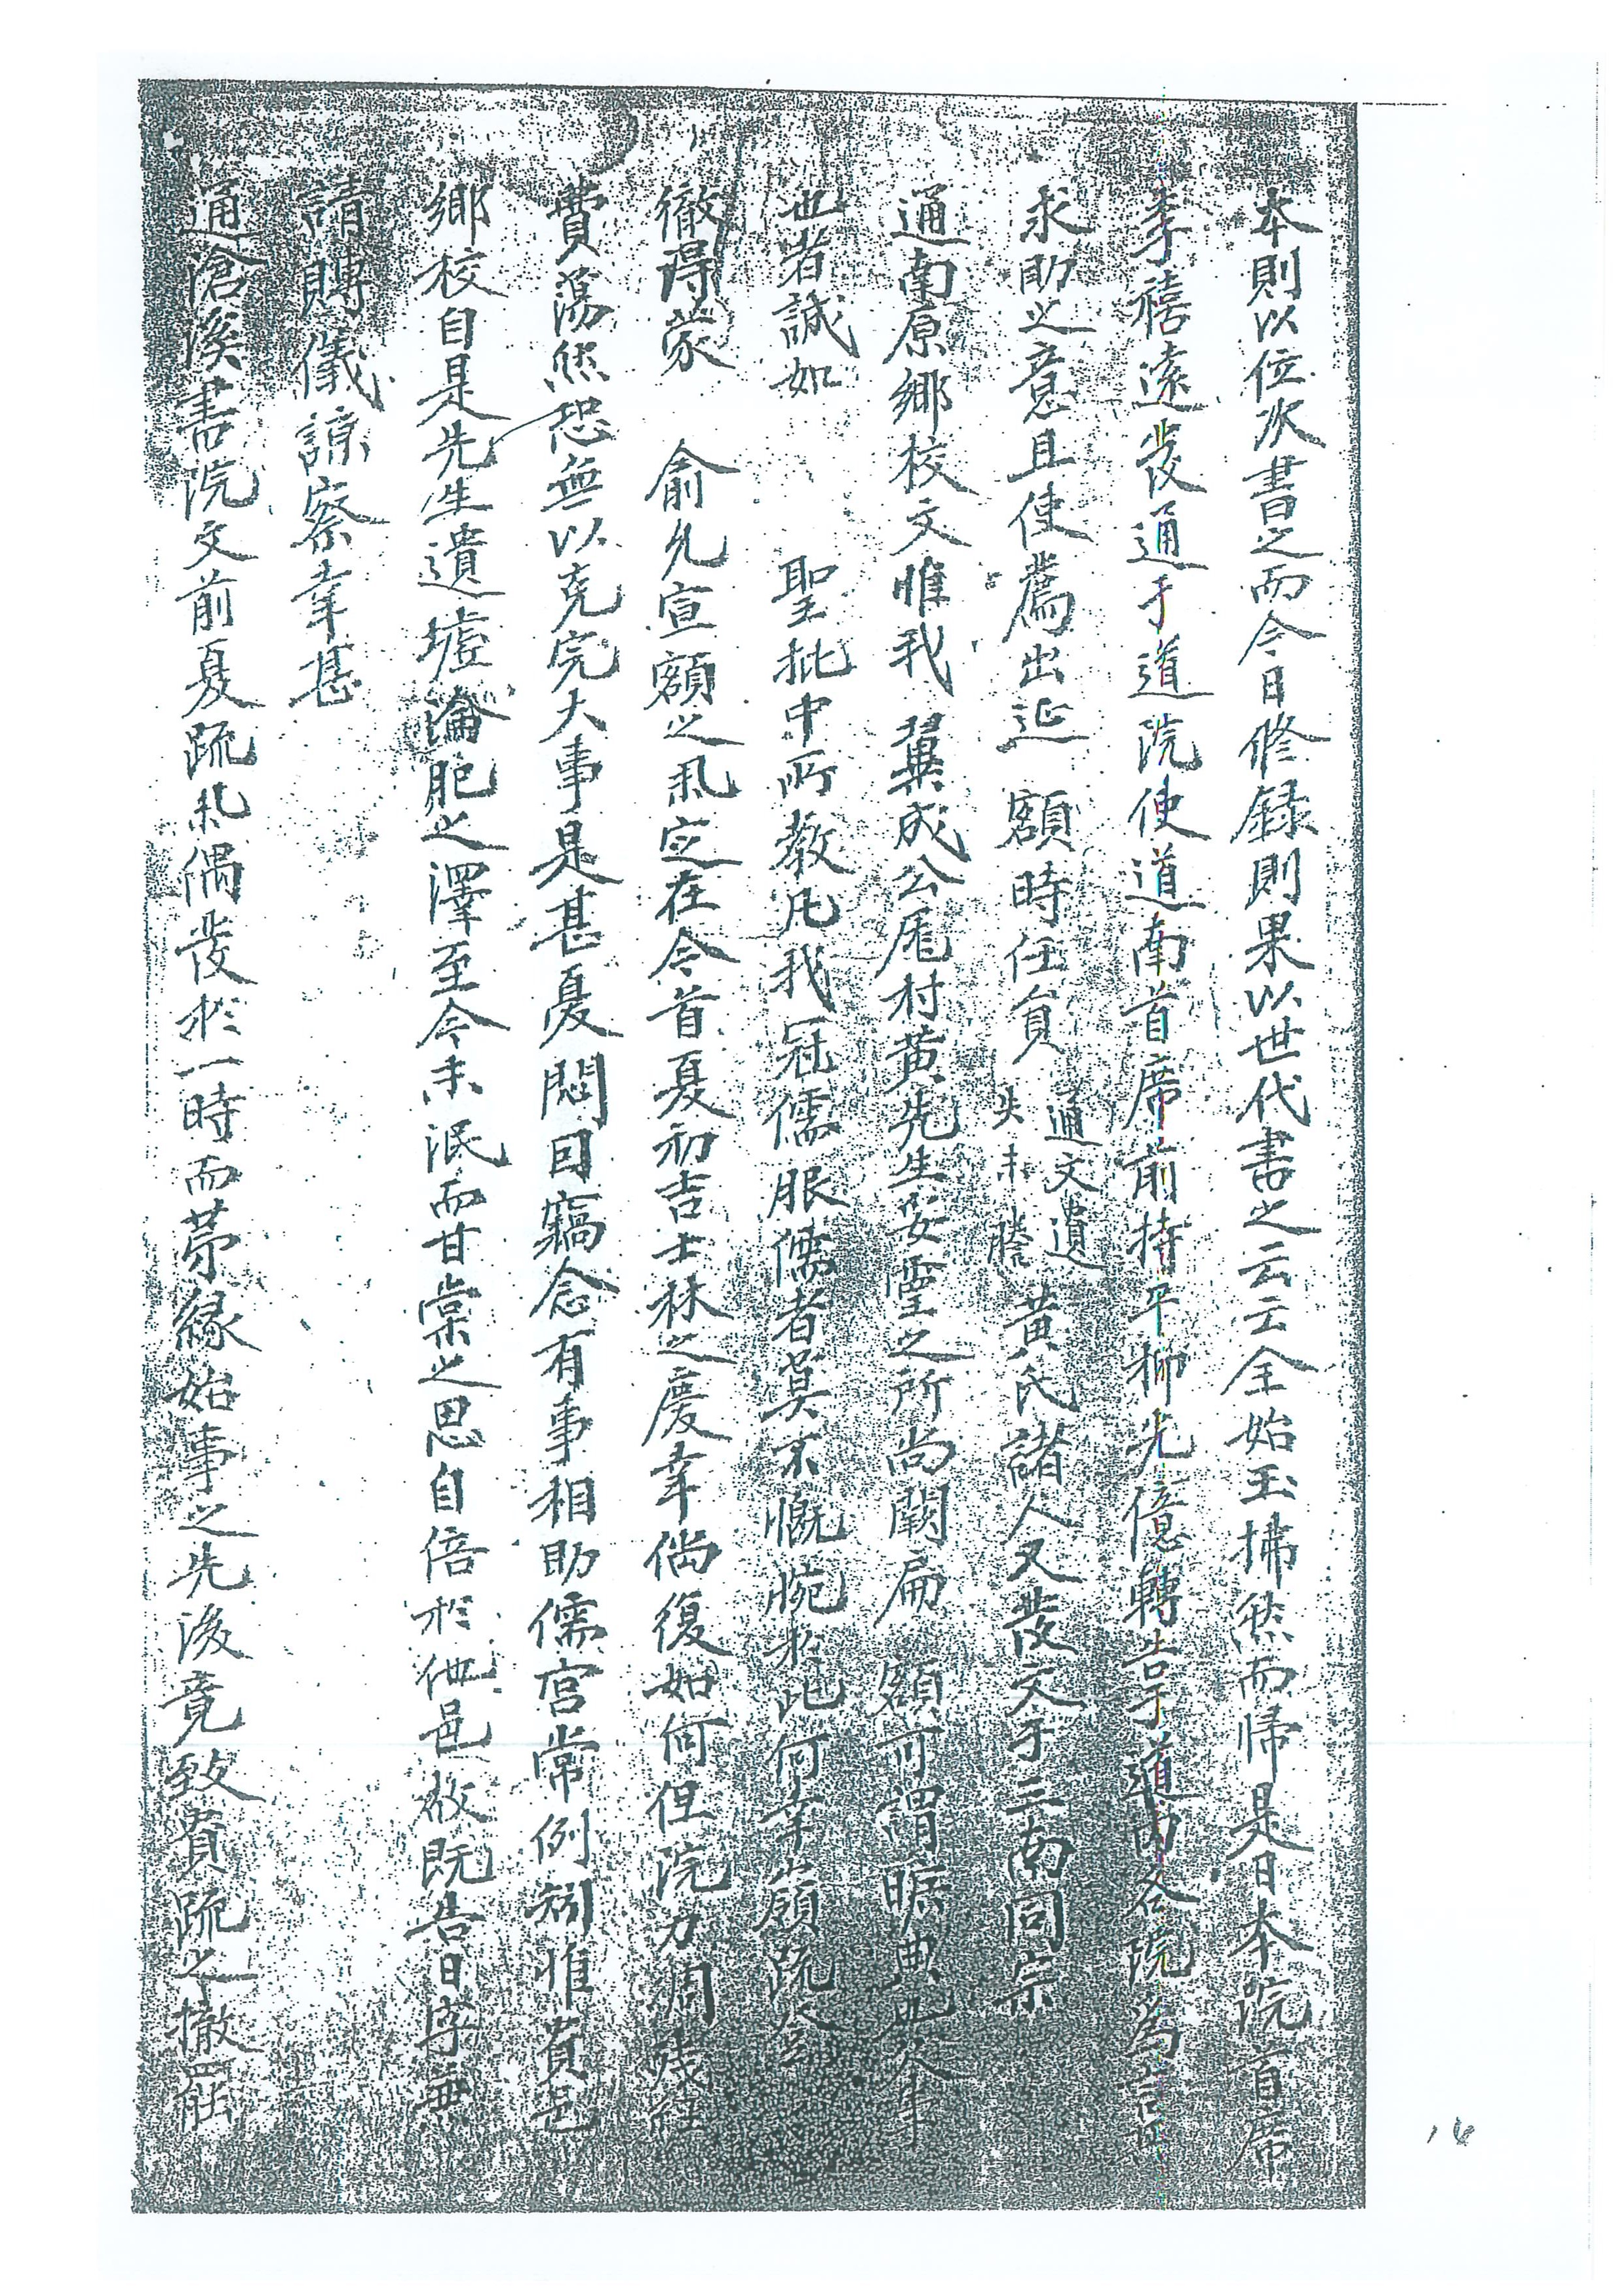 本則以位次書之而今日修錄則果以世代書之云云全始玉拂然而帰是日本院首席
李禧遠發通于道院使道南首席前持平柳光億轉告于道内各院爲言
求助之意且使薦出延 額時任負 通文遺失未謄 黃氏諸人又發文于三南同宗
通南原鄕校文惟我 翼成公厖村黃先生妥靈之所尚闕扁 額可謂曠典也本事
也者誠如 聖批中所敎凡我冠儒服儒者莫不慨惋於此何幸 疏
徹得蒙 俞允宣額之夙定在今首夏初吉士林之慶幸倘復如何但院力凋殘經
費蕩然恐無以克完大事是甚憂悶回竊念有事相助儒宮常例矧惟貴邑
鄕校自是先生遺墟淪肥之澤至今未泯而甘棠之思自倍於他邑故旣告日字兼
請賻儀諒察幸甚
通滄溪書院文前夏疏札偶發於一時而第緣始事之先後竟致貴疏之撤罷
14